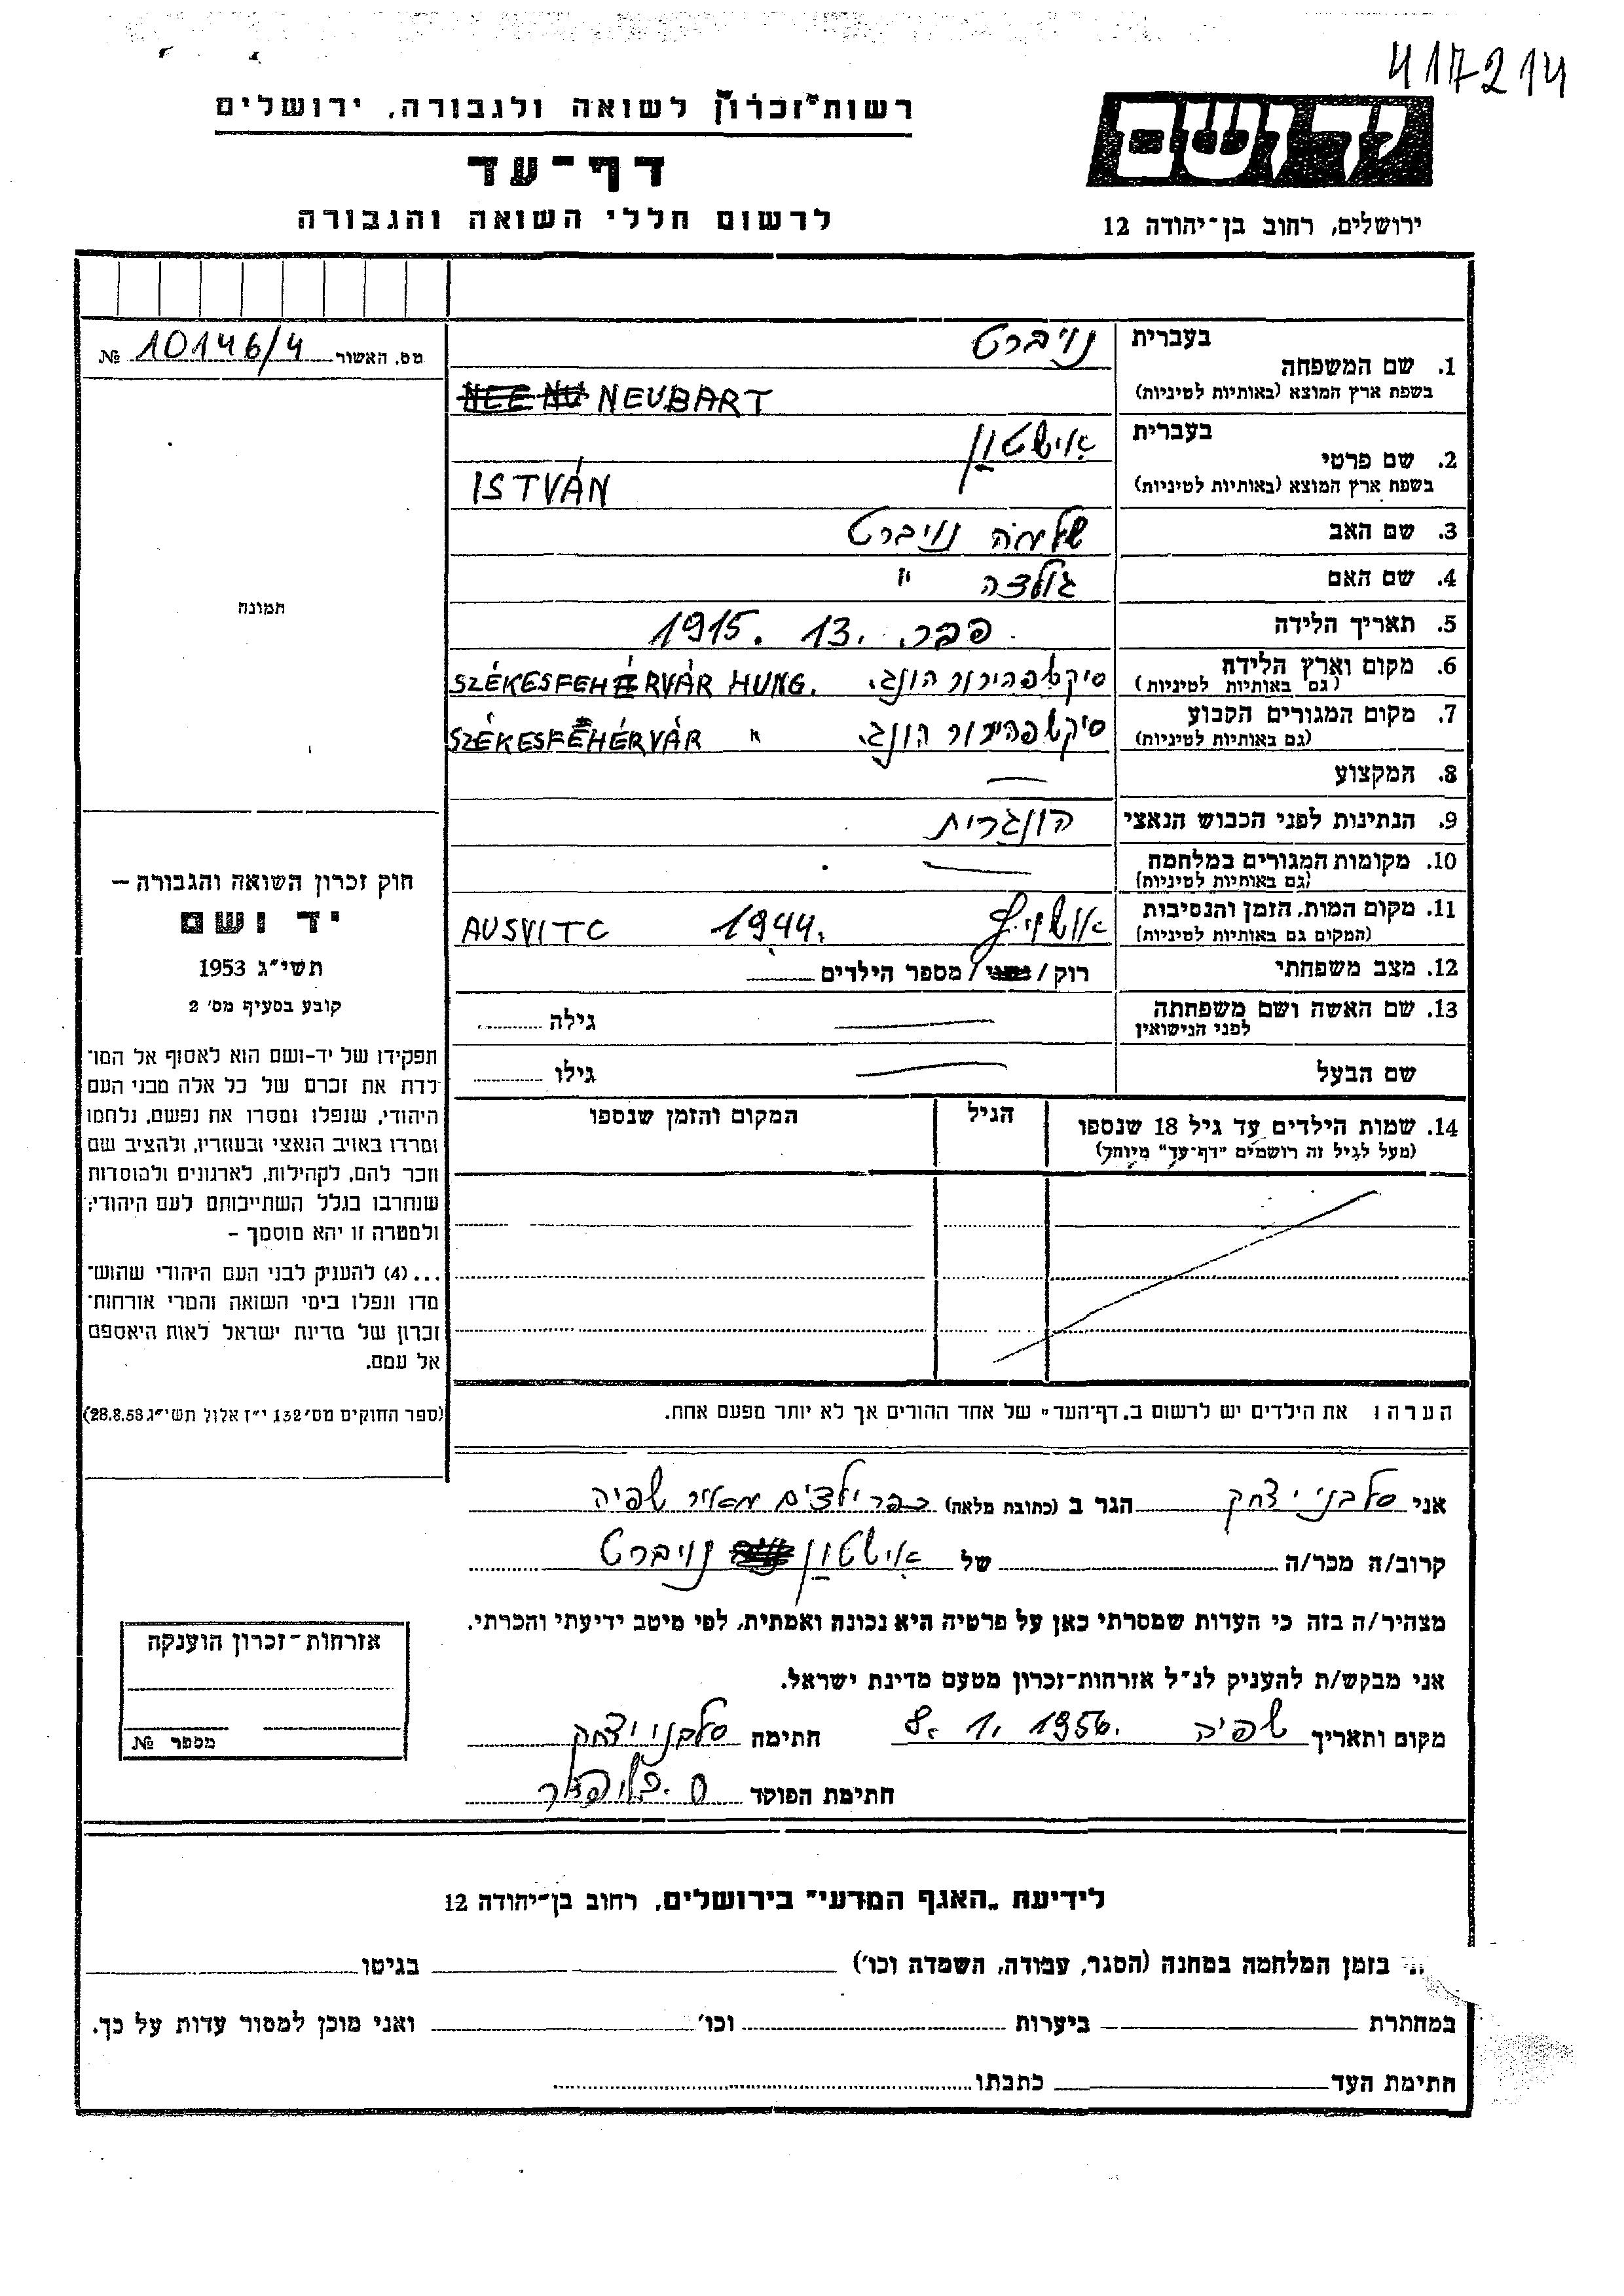 417214
רשות־זכרון לשואה ולגבורה, ירושלים
יד ושם
דף־עד
לרשום חללי השואה והגבורה
ירושלים, רחוב בן־יהודה 12
מס. האשור 10146/4 №
תמונה
חוק זכרון השואה והגבורה –
יד ושם
תשי״ג 1953
קובע בסעיף מס׳ 2
תפקידו של יד-ושם הוא לאסוף אל המו־
לדת את זכרם של כל אלה מבני העם
היהודי, שנפלו ומסרו את נפשם, נלחמו
ומרדו באויב הנאצי ובעוזריו, ולהציב שם
וזכר להם, לקהילות, לארגונים ולמוסדות
שנחרבו בגלל השתייכותם לעם היהודי;
ולמטרה זו יהא מוסמך –
...(4) להעניק לבני העם היהודי שהוש־
מדו ונפלו בימי השואה והמרי אזרחות־
זכרון של מדינת ישראל לאות היאספם
אל עמם.
(ספר החוקים מס׳ 132 י״ז אלול תשי״ג 28.8.53)
1. שם המשפחה
בעברית נויברט
בשפת ארץ המוצא (באותיות לטיניות) NEUBART
2. שם פרטי
בעברית אישטון
בשפת ארץ המוצא (באותיות לטיניות) ISTVÁN
3. שם האב שלמה נויברט
4. שם האם ״
5. תאריך הלידה פבר. 13. 1915.
6. מקום וארץ הלידה סיקשפהירור הונג. SZÉKESFEHÉRVÁR HUNG.
(גם באותיות לטיניות)
7. מקום המגורים הקבוע סיקשפהירור הונג. SZÉKESFEHÉRVÁR "
(גם באותיות לטיניות)
8. המקצוע —
9. הנתינות לפני הכבוש הנאצי הונגרית
10. מקומות המגורים במלחמה —
(גם באותיות לטיניות)
11. מקום המות, הזמן והנסיבות אושויץ 1944. AUSVITC
(המקום גם באותיות לטיניות)
12. מצב משפחתי רוק / נשוי / מספר הילדים
13. שם האשה ושם משפחתה — גילה
לפני הנישואין
שם הבעל — גילו
14. שמות הילדים עד גיל 18 שנספו הגיל המקום והזמן שנספו
(מעל לגיל זה רושמים ״דף־עד״ מיוחד)
הערה: את הילדים יש לרשום ב״דף־העד״ של אחד ההורים אך לא יותר מפעם אחת.
אני סלבני יצחק הגר ב (כתובת מלאה) כפר ילדים מאיר שפיה
קרוב/ה מכר/ה של אישטון נויברט
מצהיר/ה בזה כי העדות שמסרתי כאן על פרטיה היא נכונה ואמתית, לפי מיטב ידיעתי והכרתי.
אני מבקש/ת להעניק לנ״ל אזרחות־זכרון מטעם מדינת ישראל.
מקום ותאריך שפיה 8. 1. 1956. חתימה סלבני יצחק
חתימת הפוקד
אזרחות־זכרון הוענקה
מספר №
לידיעת ״האגף המדעי״ בירושלים, רחוב בן־יהודה 12
בזמן המלחמה במחנה (הסגר, עבודה, השמדה וכו׳) בגיטו
במחתרת ביערות וכו׳ ואני מוכן למסור עדות על כך.
חתימת העד כתבתו